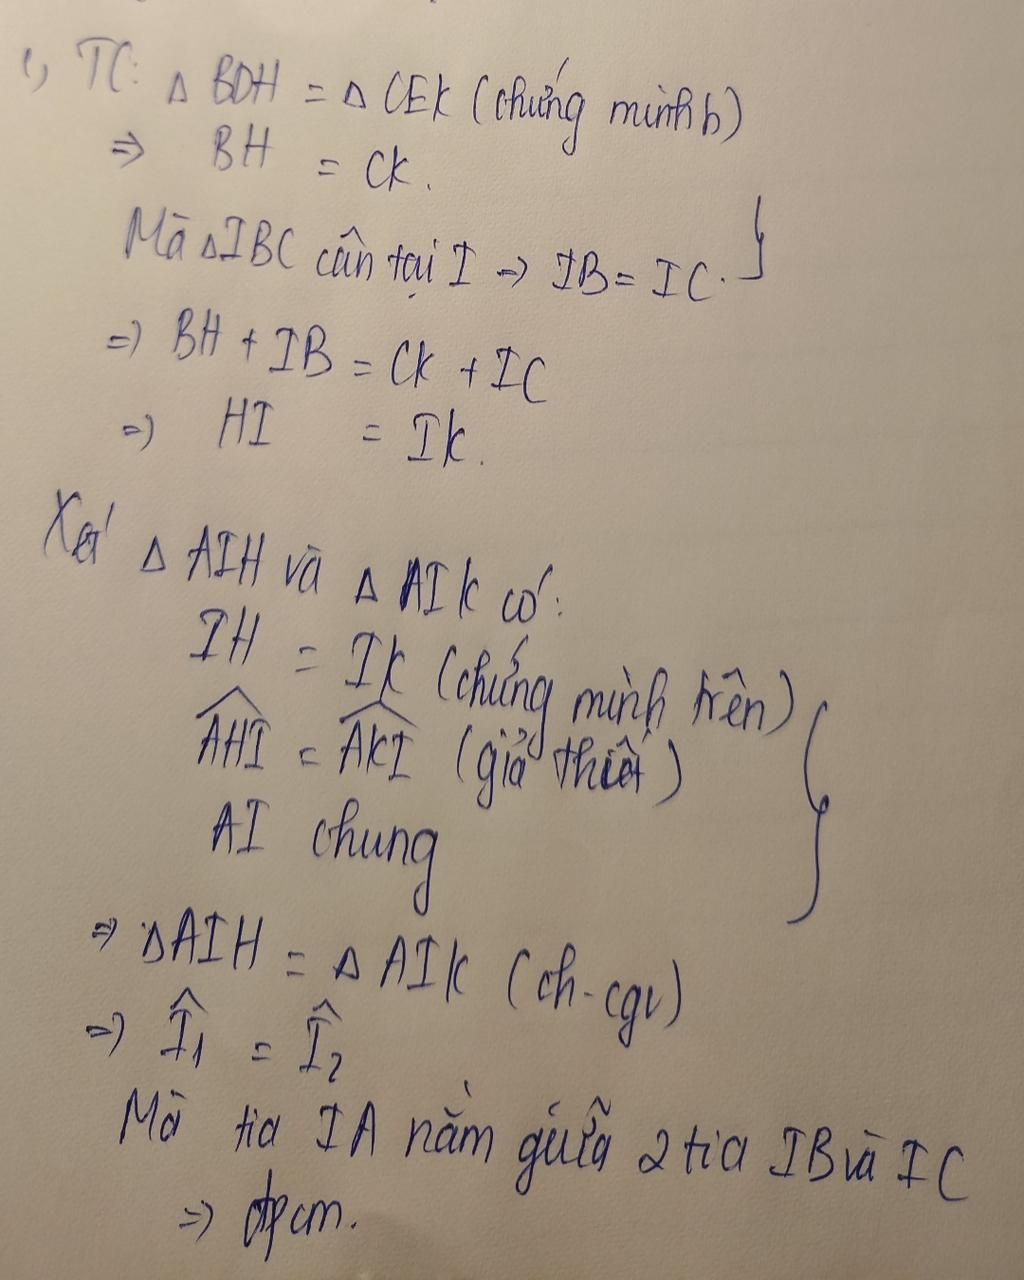 c, TC: Δ BDH = Δ CEK (chứng minh b)
=> BH = CK.
Mà ΔIBC cân tại I => IB = IC. }
=> BH + IB = CK + IC
=> HI = IK.
Xét Δ AIH và Δ AIK có:
IH = IK (chứng minh trên)
\widehat{AHI} = \widehat{AKI} (giả thiết) }
AI chung
=> ΔAIH = Δ AIK (ch-cgv)
=> Î₁ = Î₂
Mà tia IA nằm giữa 2 tia IB và IC
=> đpcm.